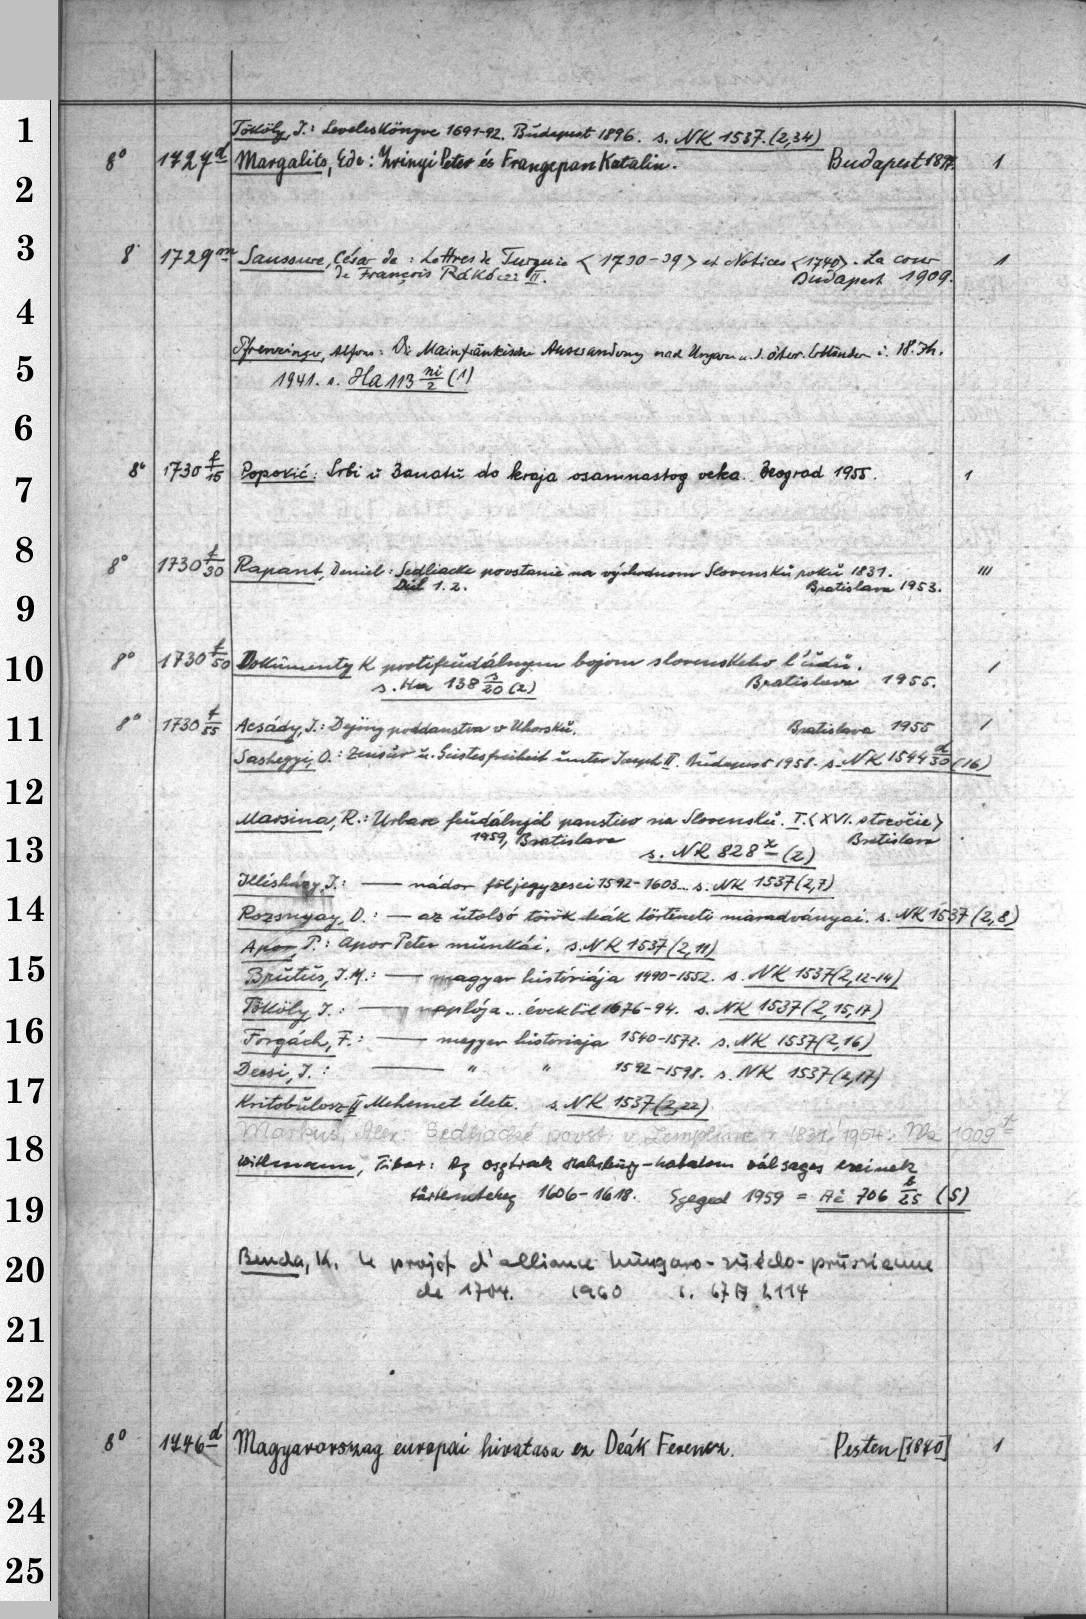 1
Tököly, I.: Leveleskönyve 1691-92. Budapest 1896. s. NK 1537.(2,34)
8° 1727d Margalits, Ede: Zrinyi Peter és Frangepan Katalin. Budapest 18 1
2
3
8 1729m Saussure, César de: Lettres de Turquie <1730-39> et Notices <1740>. La cour 1
de François Rákóczi II. Budapest 1909.
4
5
Pfrenzinger, Alfons: Die Mainfränkische Auswanderung nach Ungarn u. d. öster. Erbländern i. 18. Jh.
1941. s. Ha 113 ni/2 (1)
6
7
8° 1730 f/15 Popović: Srbi u Banatu do kraja osamnastog veka. Beograd 1955. 1
8
8° 1730 f/30 Rapant, Daniel: Sedliacke povstanie na východnom Slovensku roku 1831. III
Diel 1.2. Bratislava 1953.
9
10
8° 1730 f/50 Dokumenty k protifeudálnym bojom slovenskeho l'udu. 1
s. Ha 138 s/20 (2) Bratislava 1955.
11
8° 1730 f/55 Acsády, I.: Dejiny poddanstva v Uhorsku. Bratislava 1955 1
Sashegyi, O.: Zensur u. Geistesfreiheit unter Joseph II. Budapest 1958. s. NK 1544 d/30 (16)
12
Marsina, R.: Urbare feudálnych panstiev na Slovensku. I. <XVI. storočie>
13
1959, Bratislava Bratislava
s. NR 828 x (2)
Illésházy, I.: — nádor följegyzései 1592-1603... s. NK 1537(2,7)
14
Rozsnyay, D.: — az utolsó török deák történeti maradványai. s. NK 1537(2,8)
Apor, P.: Apor Peter munkái. s. NK 1537(2,11)
15
Brutus, I.M.: — magyar históriája 1490-1552. s. NK 1537(2,12-14)
Tököly I.: — naplója... évekböl 1676-94. s. NK 1537(2,15,17)
16
Forgách, F.: — magyar historiája 1540-1572. s. NK 1537(2,16)
Decsi, I.: — " " 1592-1598. s. NK 1537(2,17)
17
Kritobulosz II Mehemet élete. s. NK 1537(2,22)
18
Markus, Alex: Sedliacké povst. v Zempline r 1831. 1954. 1009
Wittmann, Tibor: Az osztrak Habsburg-hatalom válsagos éveinek
19
történetehez 1606-1618. Szeged 1959 = Az 706 t/25 (5)
20
Benda, K. Le projet d'alliance hungaro-suédo-prussienne
de 1704. 1960 s. 67 B 2114
21
22
23
8° 1746d Magyarország európai hivatasa ez Deák Ferencz. Pesten [1840] 1
24
25